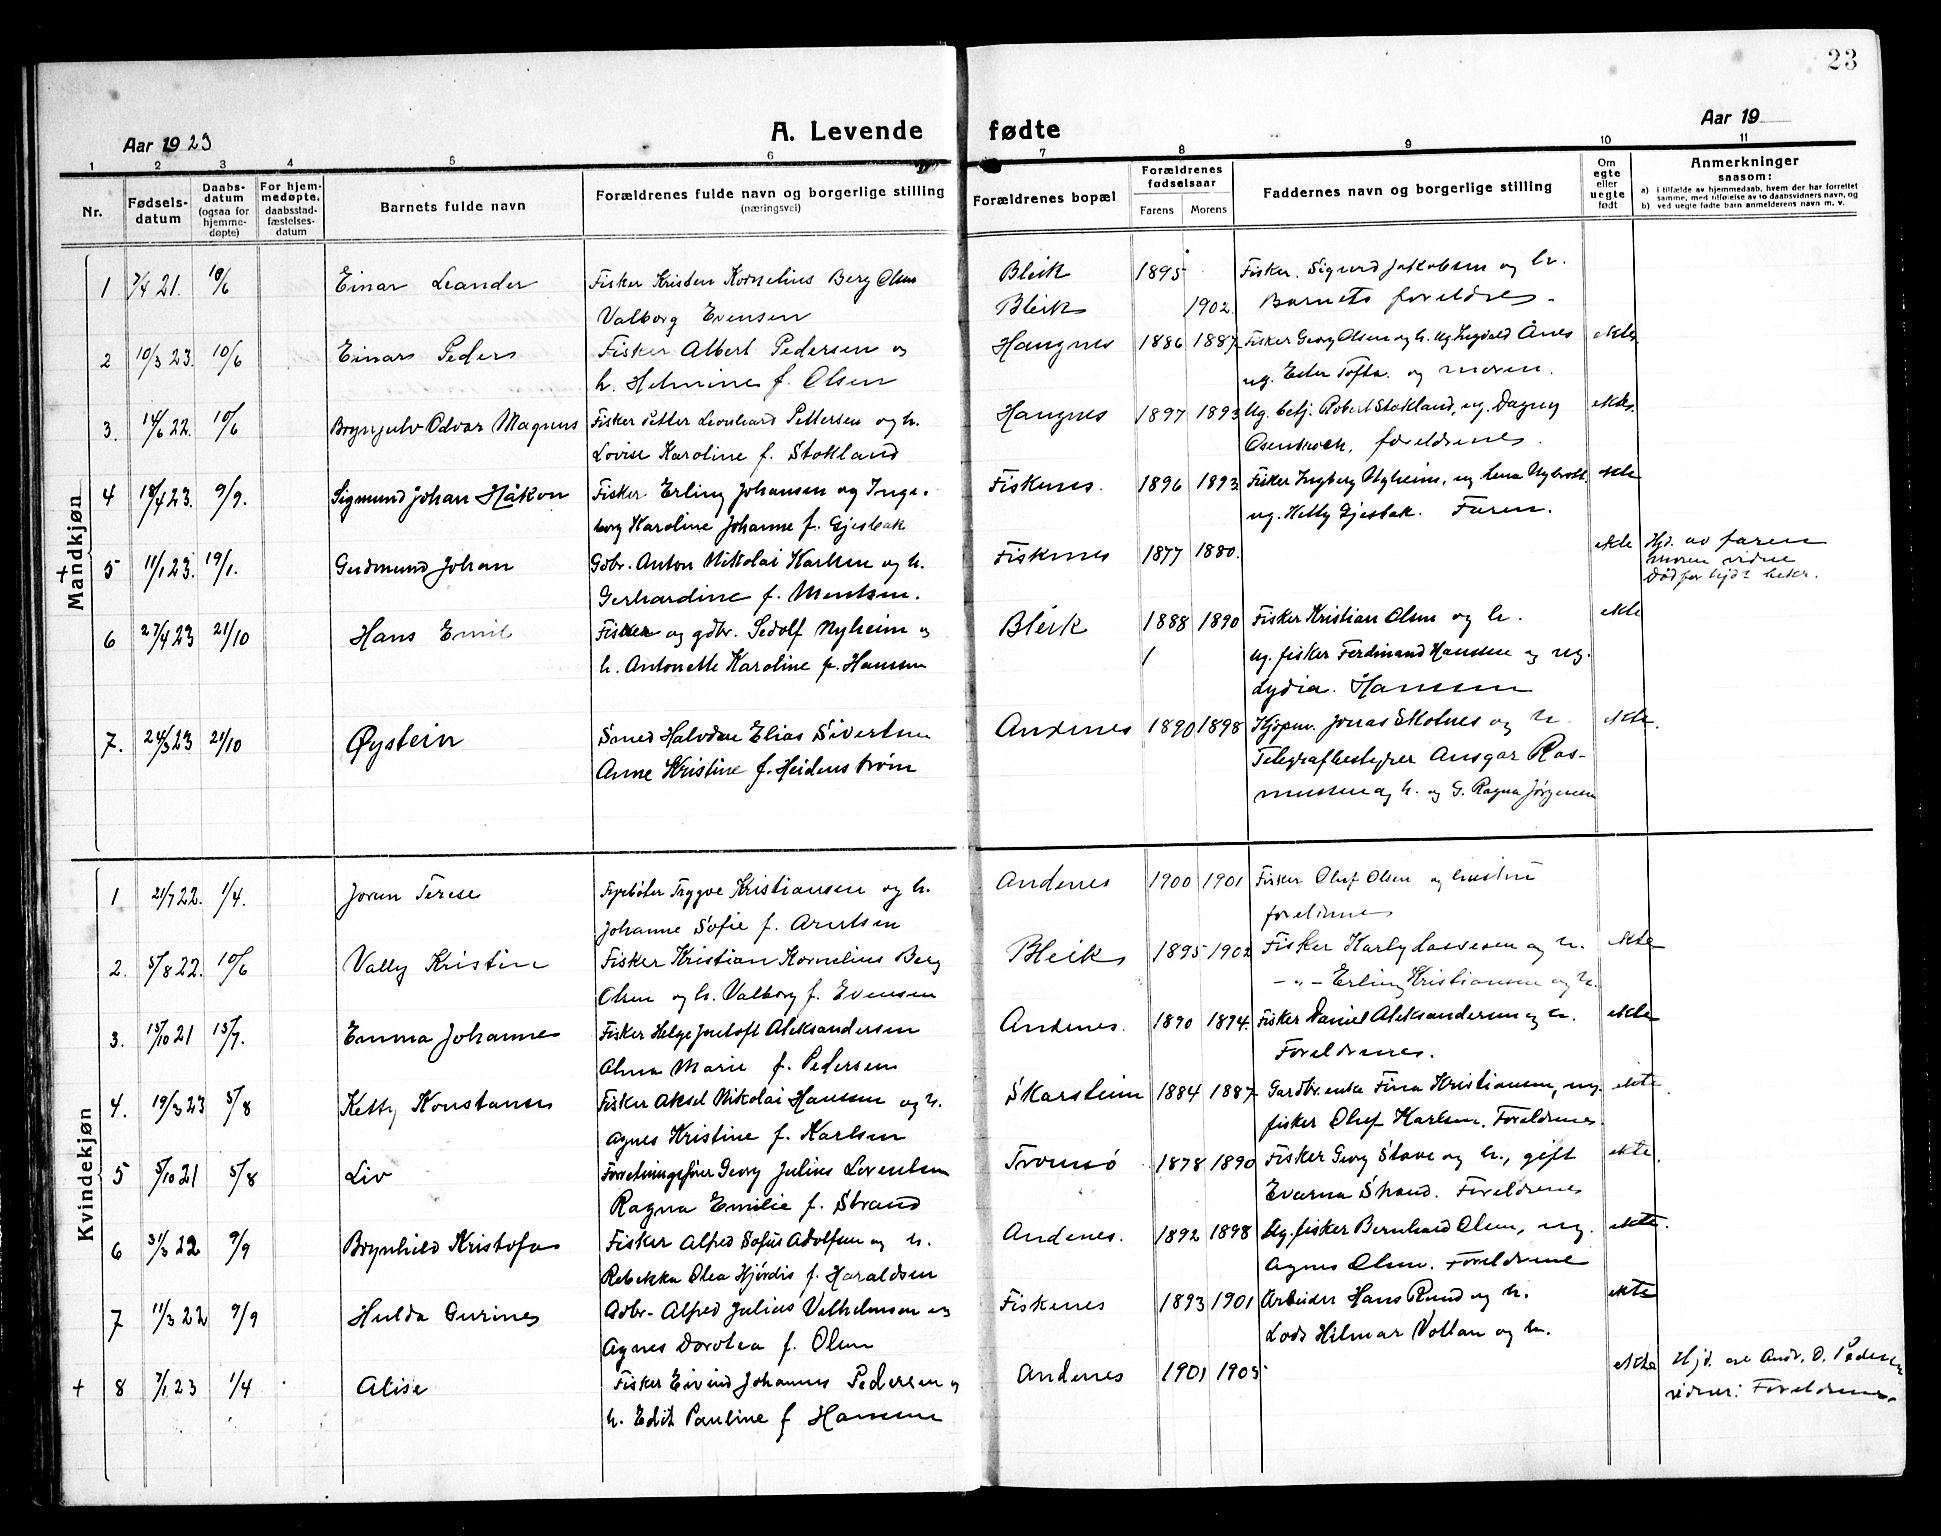 23
Aar 1923
A. Levende fødte
Aar 19
1 2 3 4 5 6 7 8 9 10 11
Nr.
Fødsels-
datum
Daabs-
datum
(ogsaa for
hjemme-
døpte)
For hjem-
medøpte,
daabsstad-
fæstelses-
datum
Barnets fulde navn
Forældrenes fulde navn og borgerlige stilling
(næringsvei)
Forældrenes bopæl
Forældrenes
fødselsaar
Farens Morens
Faddernes navn og borgerlige stilling
Om
egte
eller
uegte
født
Anmerkninger
saasom:
a) i tilfælde av hjemmedaab, hvem der har forrettet
samme, med tilføielse av to daabsvidners navn, og
b) ved uegte fødte barn anmelderens navn m. v.
Mandkjøn
1 7/4 21. 10/6 Einar Leander Fisker Kristen Kornelius Berg Olsen Bleik 1895 Fisker. Sigurd Jakobsen og h.
Valborg Evensen Bleik 1902. Barnets foreldre.
2 10/3 23. 10/6 Einar Peder Fisker Albert Pedersen og Haugnes 1886 1887 Fisker Georg Olsen og h. Ug. Ånes ekte
h. Helmine f. Olsen ug. Ester Tofte. og moren.
3. 14/6 22. 10/6 Brynjulv Odvar Magnus Fisker Petter Leonhard Pettersen og h. Haugnes 1897 1893 Ug. betj. Robert Stokland, ug. Dagny ekte.
Lovise Karoline f. Stokland foreldrenes.
4 18/4 23. 9/9. Sigmund Johan Håkon Fisker Erling Johansen og Inge- Fiskenes. 1896 1893. Fisker Ingberg Nyheim, ug Lena ekte
borg Karoline Johanne f. Gjesbak ug. Hetty Gjesbak. Faren.
+ 5 11/1 23. 19/1. Gudmund Johan Gdbr. Anton Nikolai Karlsen og h. Fiskenes 1877 1880. ekte Hjd. av faren
Gerhardine f. Mentsen. moren vidne
Død før hjd. bekr.
6 27/4 23 21/10 Hans Emil Fisker og gdbr. Sedolf Nyheim og Bleik 1888 1890 Fisker Kristian Olsen og h. ekte
h. Antonette Karoline f. Hansen Ug. fisker Ferdinand Hanssen og ug.
Lydia. Hanssen
7. 24/3 23 21/10 Øystein Smed Halvdan Elias Sivertsen Andenes 1890 1898 Kjøpm. Jonas Skotnes og h. ekte.
Anne Kristine f. Heidenstrøm Telegrafbestyrer Ansgar Ras-
mussen og h. og G. Ragna Jörgensen
Kvindekjøn
1 21/7 22. 1/4. Jorun Terese Fyrbøter Trygve Kristiansen og h. Andenes 1900 1901 Fisker Oluf Olsen og hustru
Johanne Sofie f. Arntsen foreldrene
2. 5/8 22. 10/6 Vally Kristine Fisker Kristian Kornelius Berg Bleik 1895 1902 Fisker Karly Lassesen og h. ekte
Olsen og h. Valborg f. Evensen — " — Erling Kristiansen og h.
3. 15/10 21 15/7. Emma Johanne Fisker Helge Juntoft Aleksandersen Andenes. 1890 1894. Fisker Daniel Aleksandersen og h. ekte
Alma Marie f. Pedersen Foreldrenes.
4. 19/3 23 5/8 Ketty Konstanse Fisker Aksel Nikolai Hanssen og h. Skarstein 1884 1887 Gardbr. enke Fina Kristiansen, ug. ekte.
Agnes Kristine f. Karlsen fisker Oluf Karlsen. Foreldrenes.
5 5/10 21 5/8 Liv Forretningsfører Georg Julius Lorentsen Tromsö 1878 1890 Fisker Georg Stave og h., gift ekte.
Ragna Emilie f. Strand Evarna Strand. Foreldrenes
6 31/3 22 9/9 Brynhild Kristofa Fisker Alfred Sofus Adolfsen og h. Andenes. 1892 1898 Ug. fisker Bernhard Olsen, ug. ekte.
Rebekka Olea Hjördis f. Haraldsen Agnes Olsen. Foreldrene
7 11/3 22 9/9 Hulda Gurine Gdbr. Alfred Julius Vilhelmsen og Fiskenes 1893 1901 Arbeider Hans Rund og h. ekte
Agnes Dorotea f. Olsen Lods Hilmar Voltan og h.
+ 8 7/1 23 1/4 Alise Fisker Eivind Johannes Pedersen og Andenes 1901 1905 ekte Hjd. av Andr. O. Pedersen
h. Edit Pauline f Hanssen vidner: Foreldrene.